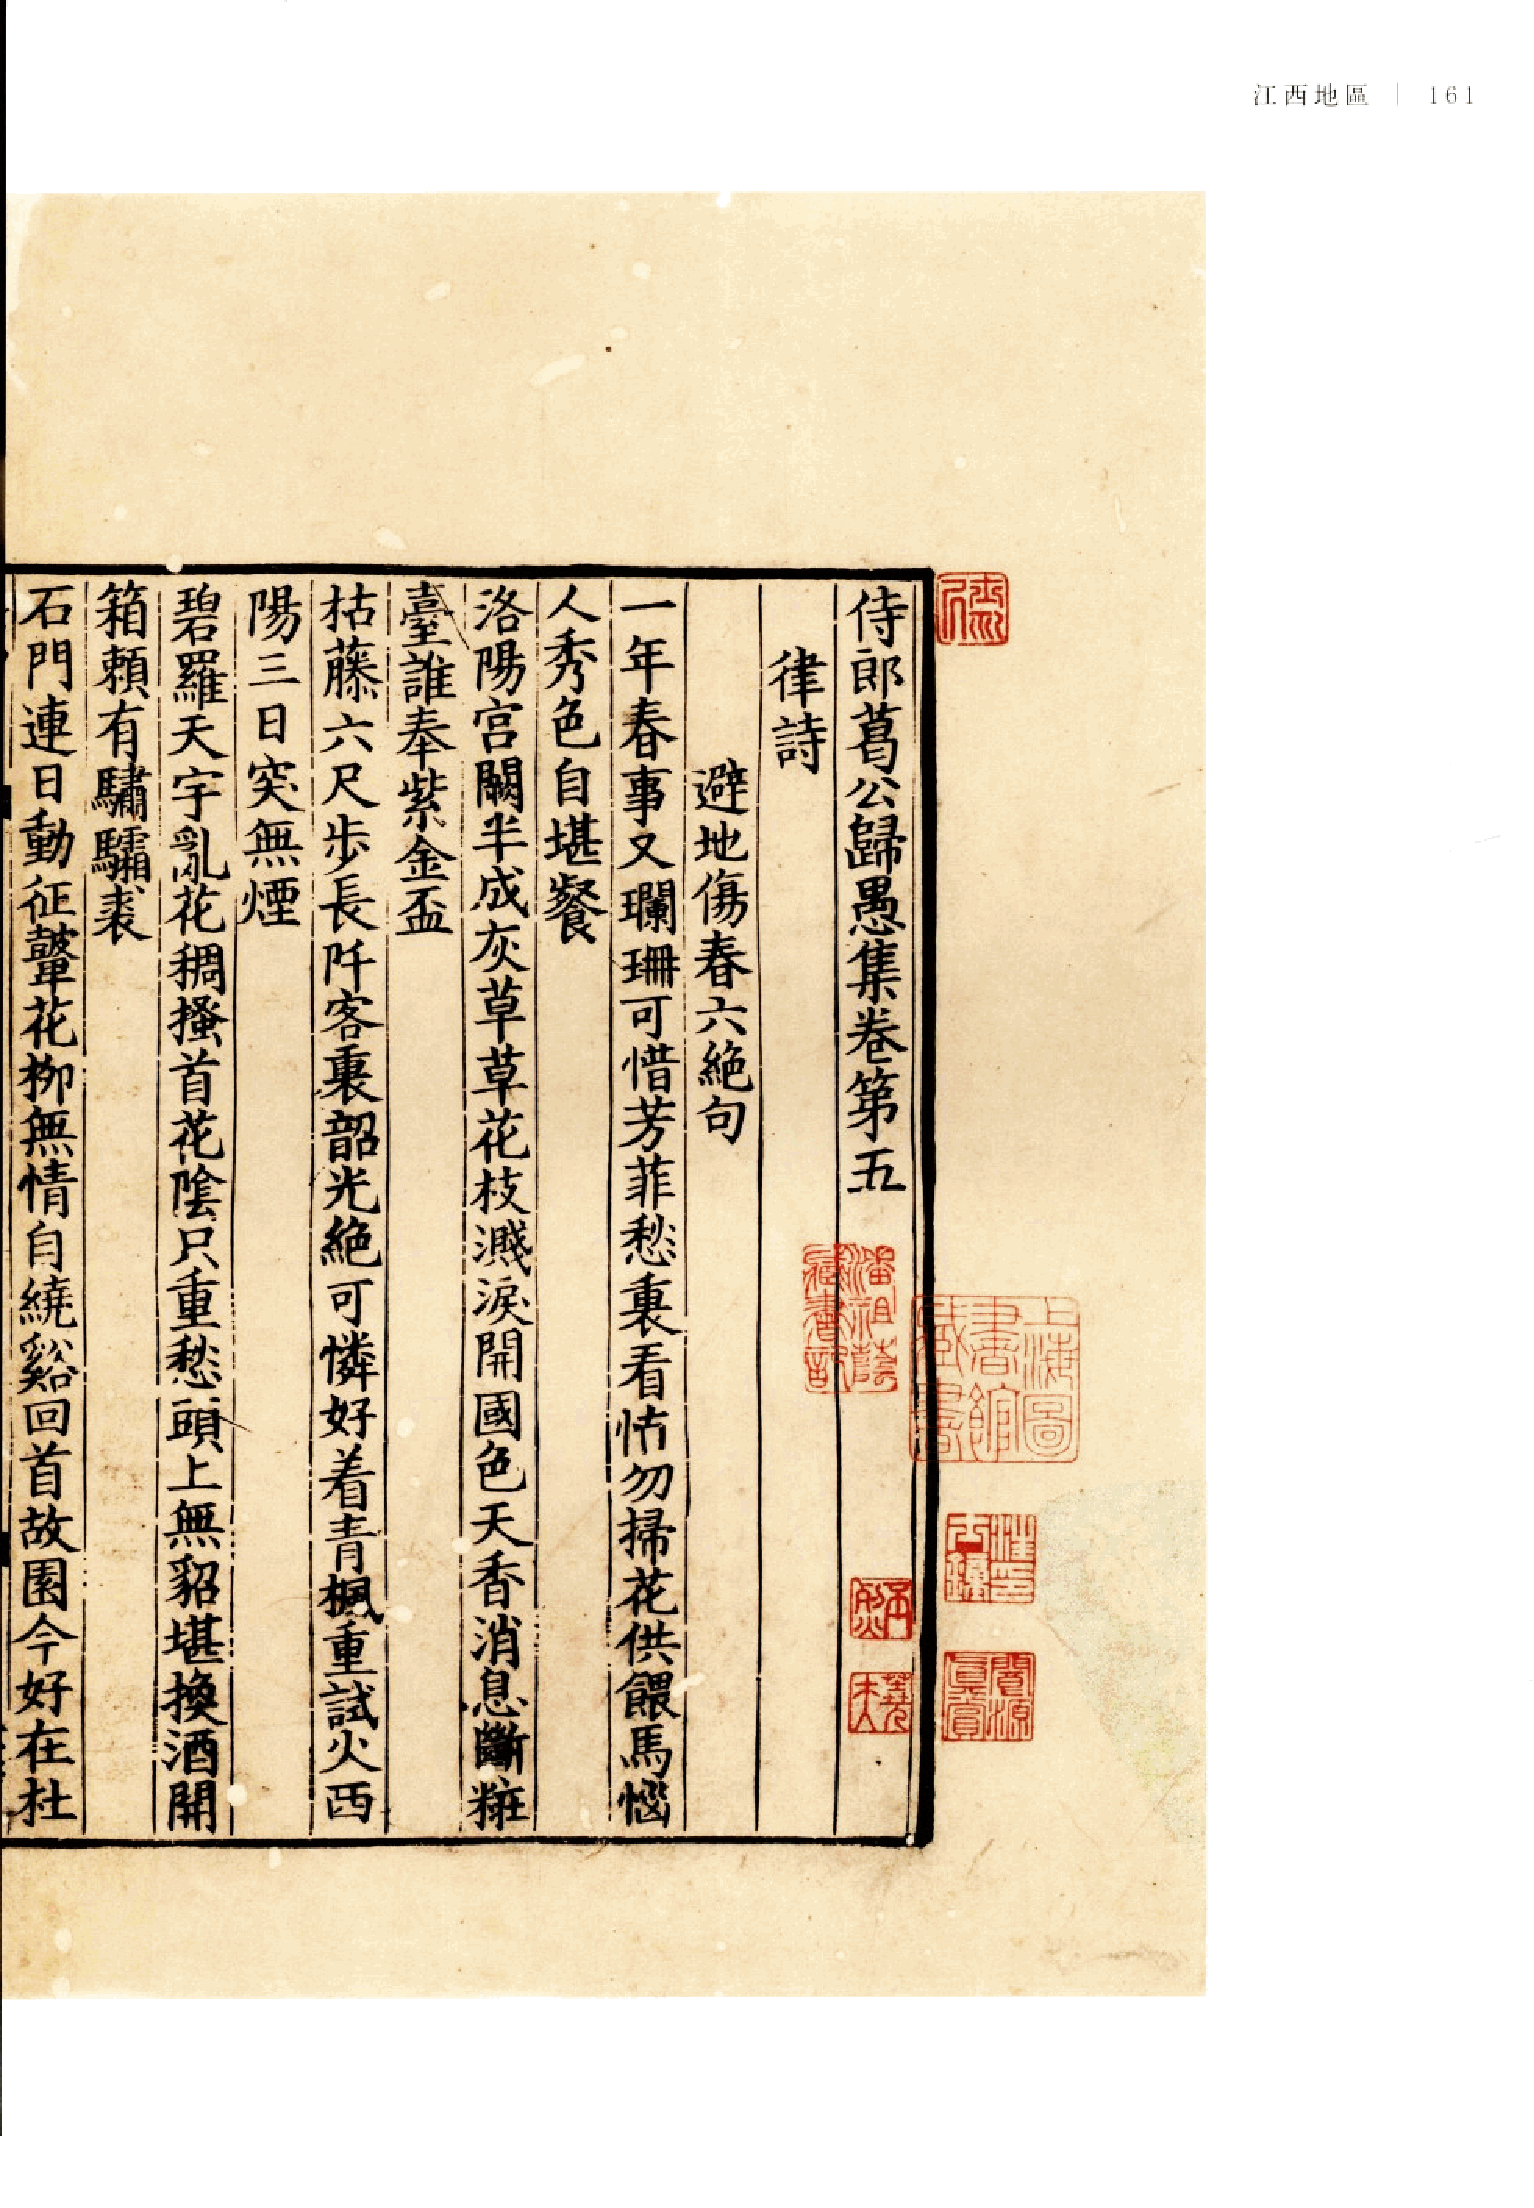 江西地區 | 161
侍郎葛公歸愚集卷第五
律詩
避地傷春六絶句
一年春事又瓓珊可惜芳菲愁裏看怕勿掃花供餵馬惱
人秀色自堪餐
洛陽宫闕半成灰草草花枝濺淚開國色天香消息斷粧
臺誰奉紫金盃
枯藤六尺步長阡客裏韶光絶可憐好着青楓重試火西
陽三日突無煙
碧羅天宇亂花稠搔首花陰只重愁頭上無貂堪換酒開
箱頼有驌驦裘
石門連日動征鼙花柳無情自繞谿回首故園今好在杜
上海圖書館藏書
潘祖蔭藏書記
閬源真賞